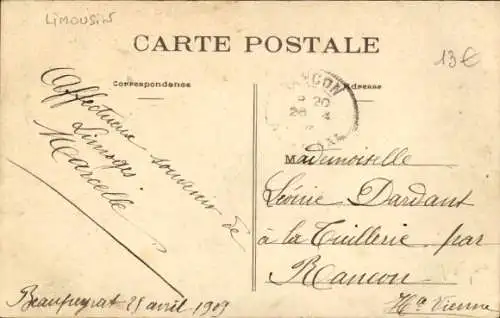 LIMOUSIN
CARTE POSTALE
13€
Correspondance
Adresse
RANCON
20
26 4
Affectueux souvenir de
Limoges
Marcelle
Mademoiselle
Léonie Dardant
à la Tuillerie par
Rancon
Hte Vienne
Beaupeyrat 25 avril 1909